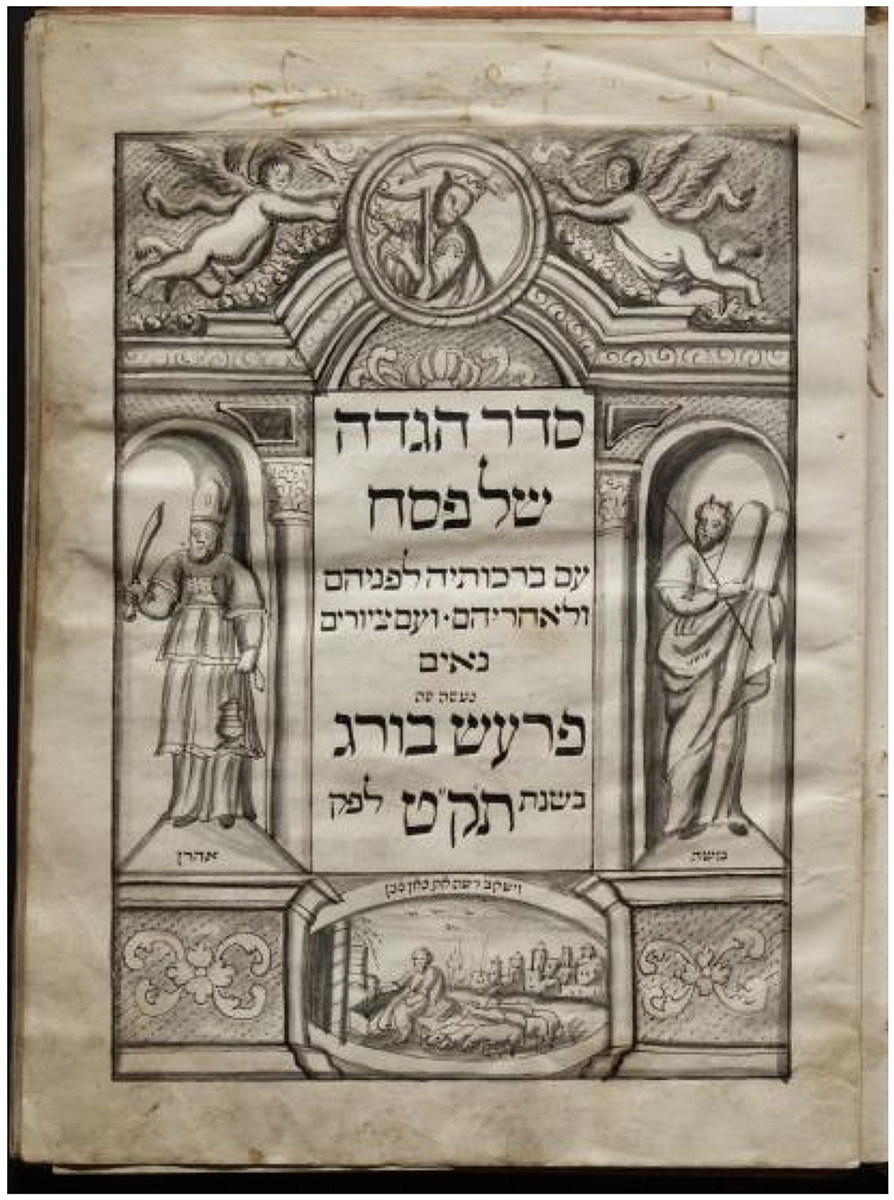 סדר הגדה
של פסח
עם ברכותיה לפניהם
ולאחריהם · ועם ציורים
נאים
נעשה פה
פרעש בורג
בשנת תק״ט לפק
אהרן
משה